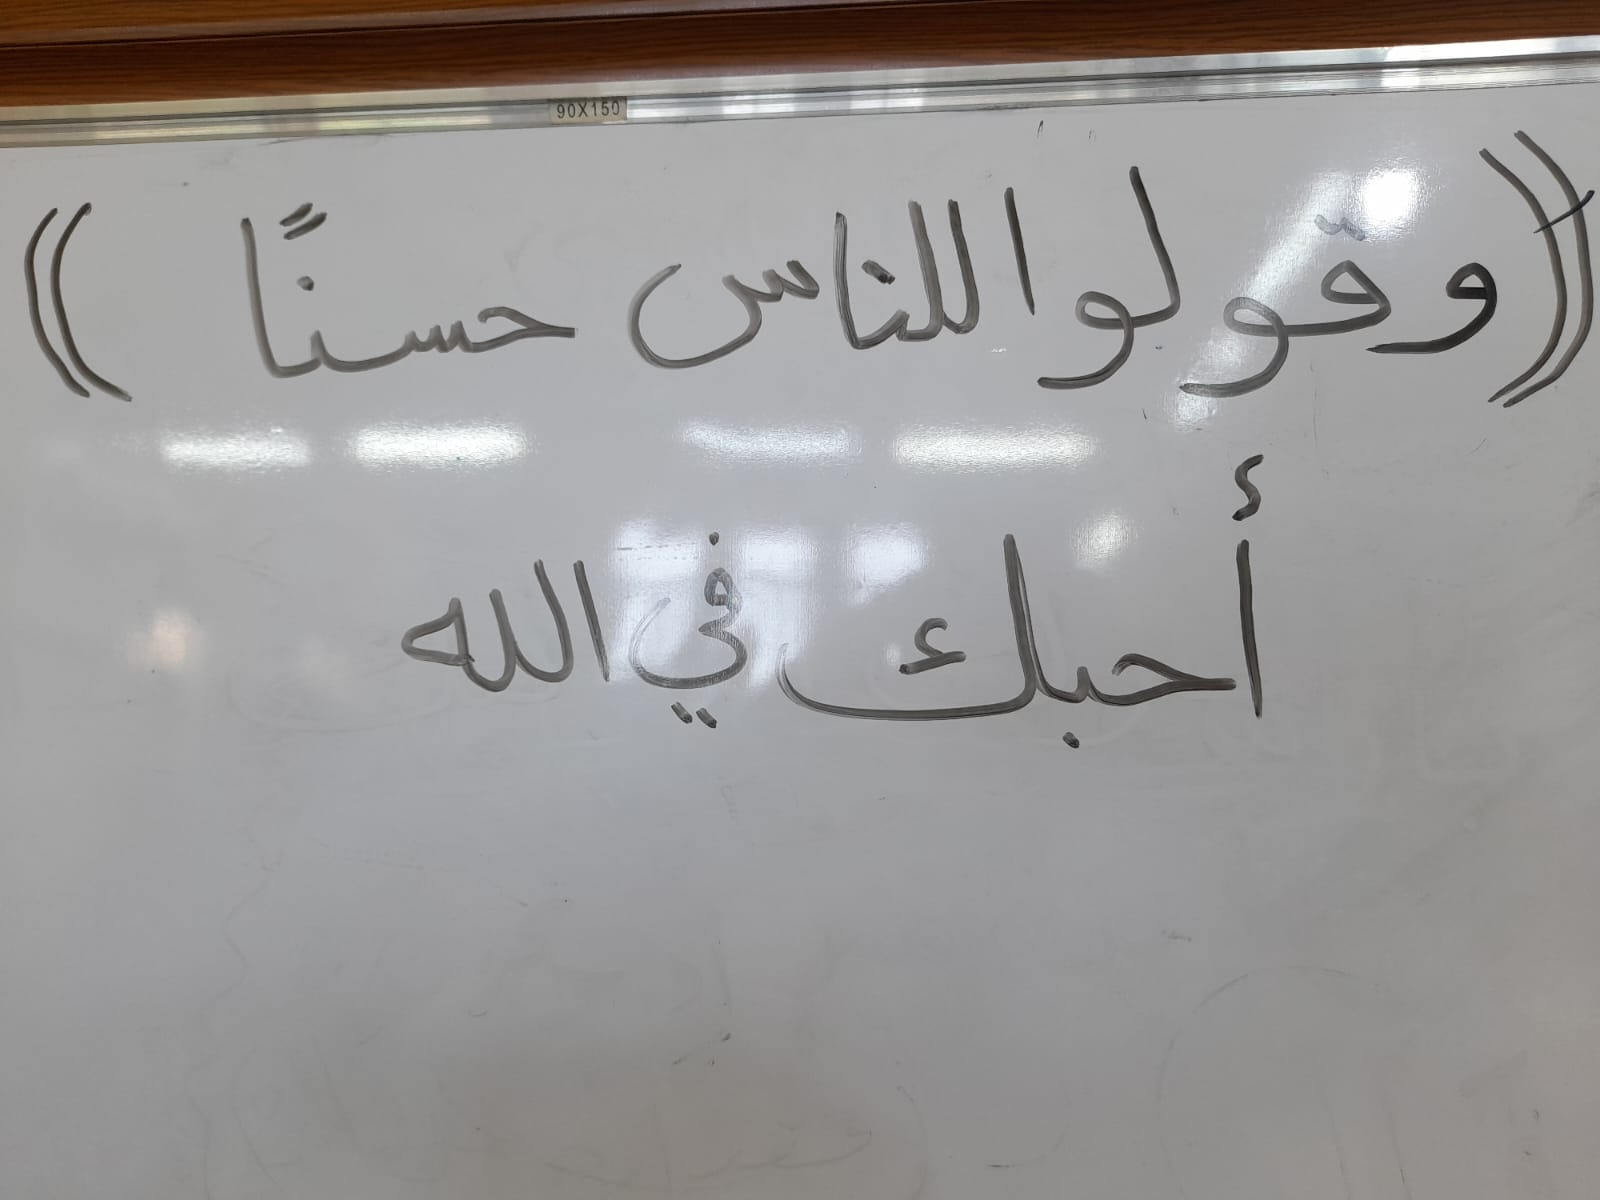 90X150
((وقولوا للناس حسنًا))
أحبك في الله